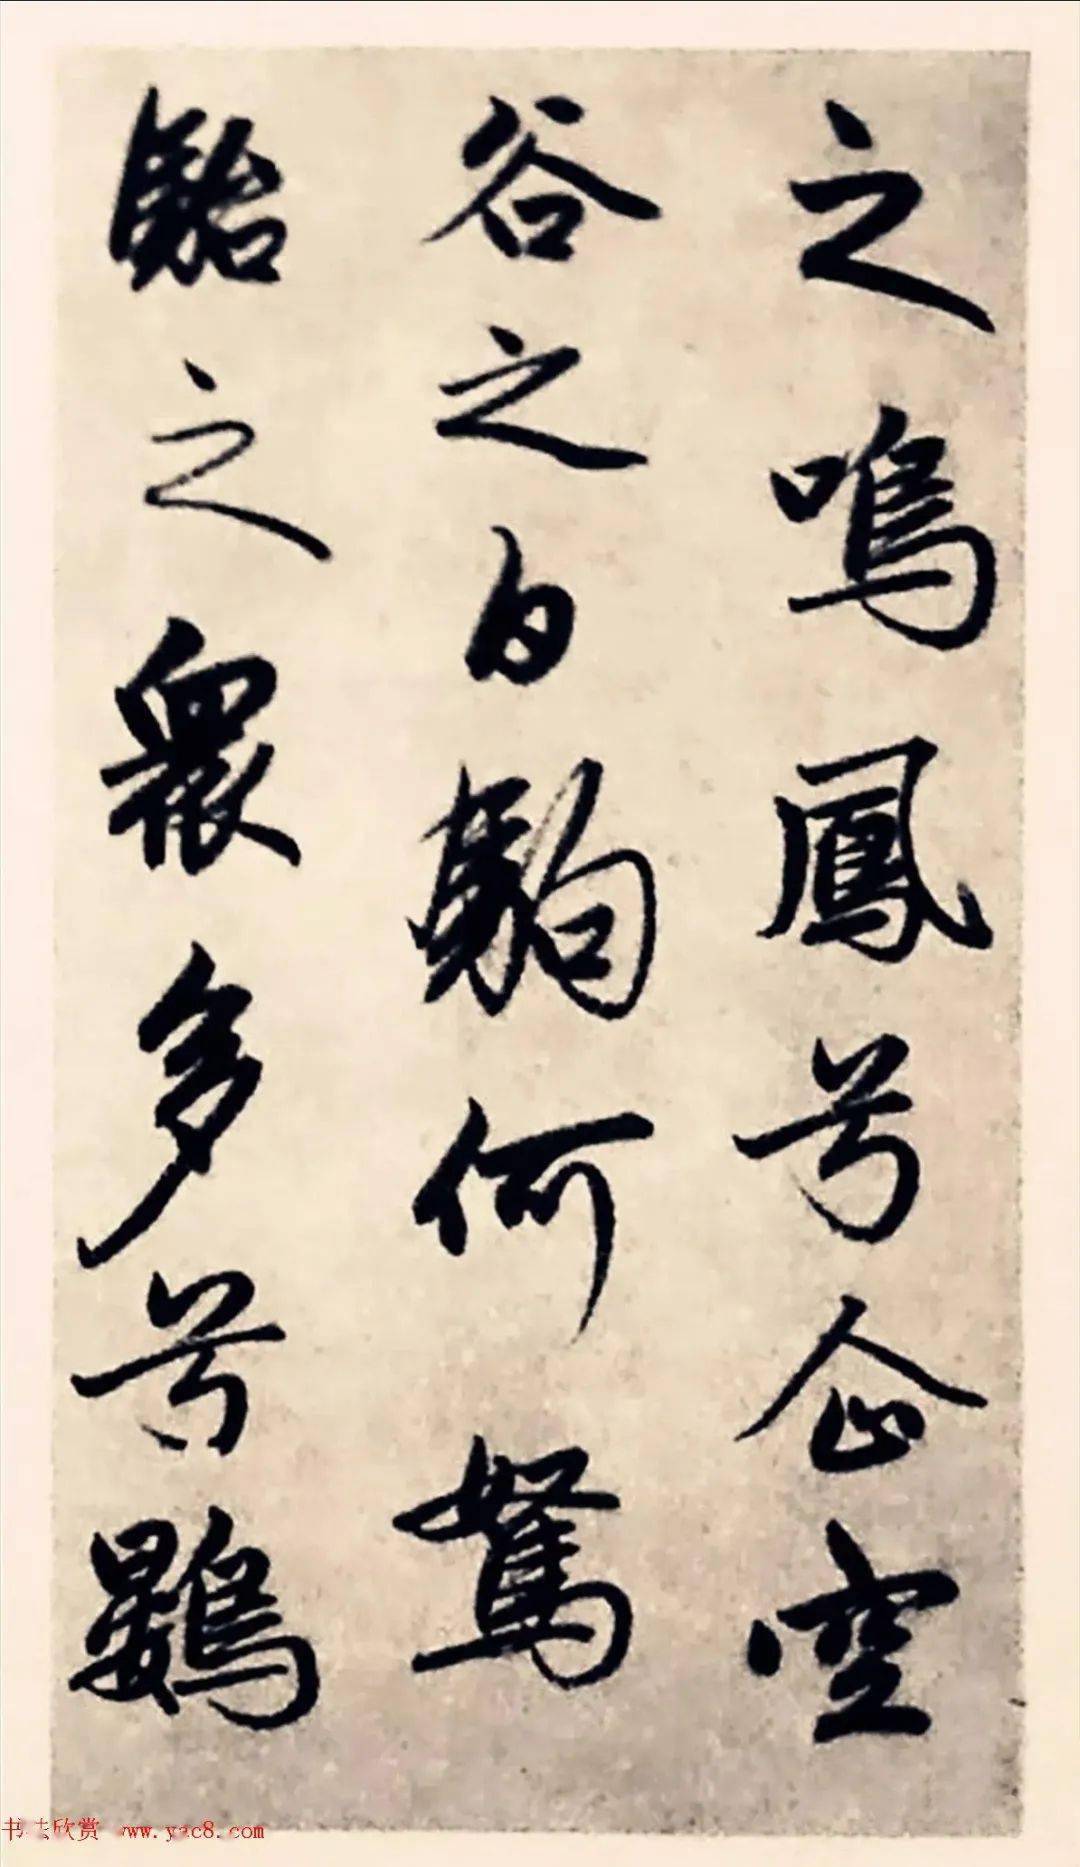 之鳴鳳兮企空
谷之白駒何駑
駘之衆多兮鷃
书法欣赏 www.yac8.com